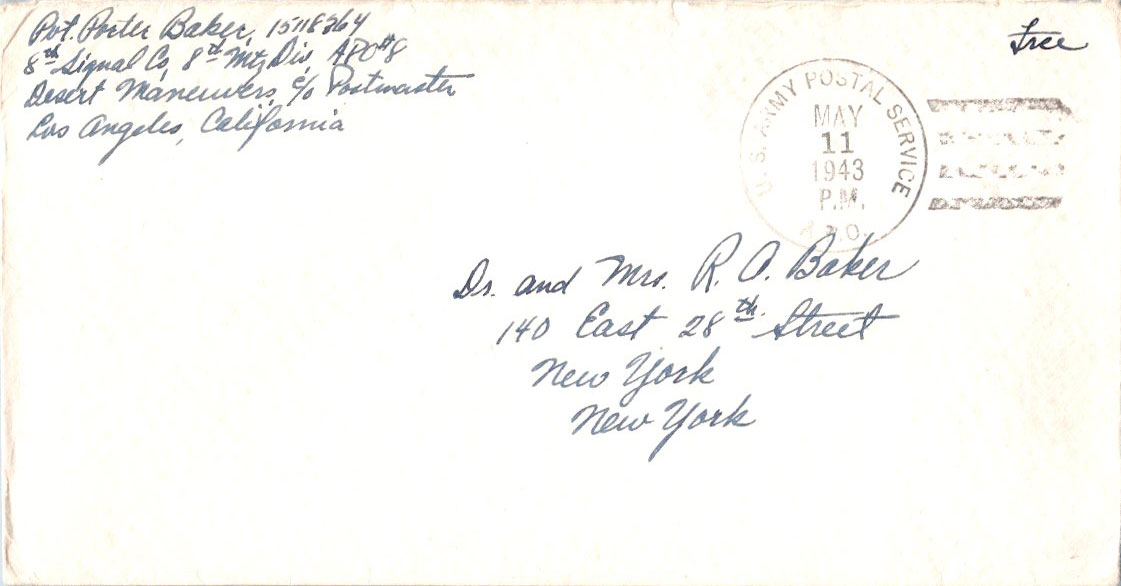 Pvt. Porter Baker, 15118264
8th Signal Co, 8th Mtz Div, APO #8
Desert Maneuvers, c/o Postmaster
Los Angeles, California
Free
U.S. ARMY POSTAL SERVICE
MAY
11
1943
P.M.
Dr. and Mrs. R. O. Baker
140 East 28th Street
New York
New York